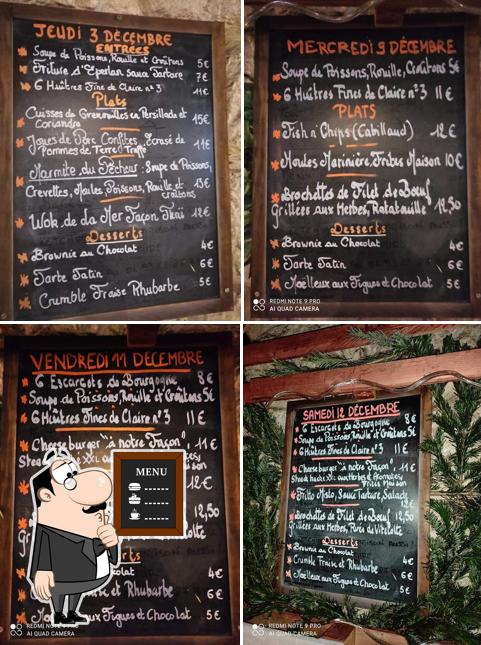 JEUDI 3 DÉCEMBRE
ENTRÉES
Soupe de Poissons, Rouille et Croûtons 5€
Friture d'Eperlan Sauce Tartare 7€
6 Huîtres Fine de Claire n°3 11€
Plats
Cuisses de Grenouilles en Persillade et Coriandre 15€
Joues de Porc Confites, Ecrasé de
Pommes de Terre/Truffe 11€
Marmite du Pêcheur : Soupe de Poissons,
Crevettes, Moules, Poissons, Rouille et croûtons 13€
Wok de la Mer Façon Thaï 12€
Desserts
Brownie au Chocolat 4€
Tarte Tatin 6€
Crumble Fraise Rhubarbe 5€
MERCREDI 9 DÉCEMBRE
Soupe de Poissons, Rouille, Croûtons 5€
6 Huîtres Fines de Claire n°3 11€
PLATS
Fish n' Chips (Cabillaud) 12€
Moules Marinière, Frites Maison 10€
Brochettes de Filet de Bœuf
Grillées aux Herbes, Ratatouille 12,50
Desserts
Brownie au Chocolat 4€
Tarte Tatin 6€
Moëlleux aux Figues et Chocolat 5€
VENDREDI 11 DÉCEMBRE
6 Escargots de Bourgogne 8€
Soupe de Poissons, Rouille et Croûtons 5€
6 Huîtres Fines de Claire n°3 11€
Cheeseburger "à notre Façon", 11€
12€
12,50
4€
et Rhubarbe 6€
aux Figues et Chocolat 5€
MENU
SAMEDI 12 DÉCEMBRE
6 Escargots de Bourgogne 8€
Soupe de Poissons, Rouille et Croûtons 5€
6 Huîtres Fines de Claire n°3 11€
Cheeseburger "à notre Façon", 11€
Steak haché XXL aux Herbes et Aromates, Frites Maison
Fritto Misto, Sauce Tartare, Salade
12€
Brochettes de Filet de Bœuf 12,50
Grillées aux Herbes, Purée de Vitelotte
Desserts
Brownie au Chocolat 4€
Crumble Fraise et Rhubarbe 6€
Moëlleux aux Figues et Chocolat 5€
REDMI NOTE 9 PRO
AI QUAD CAMERA
REDMI NOTE 9 PRO
AI QUAD CAMERA
REDMI NOTE 9 PRO
AI QUAD CAMERA